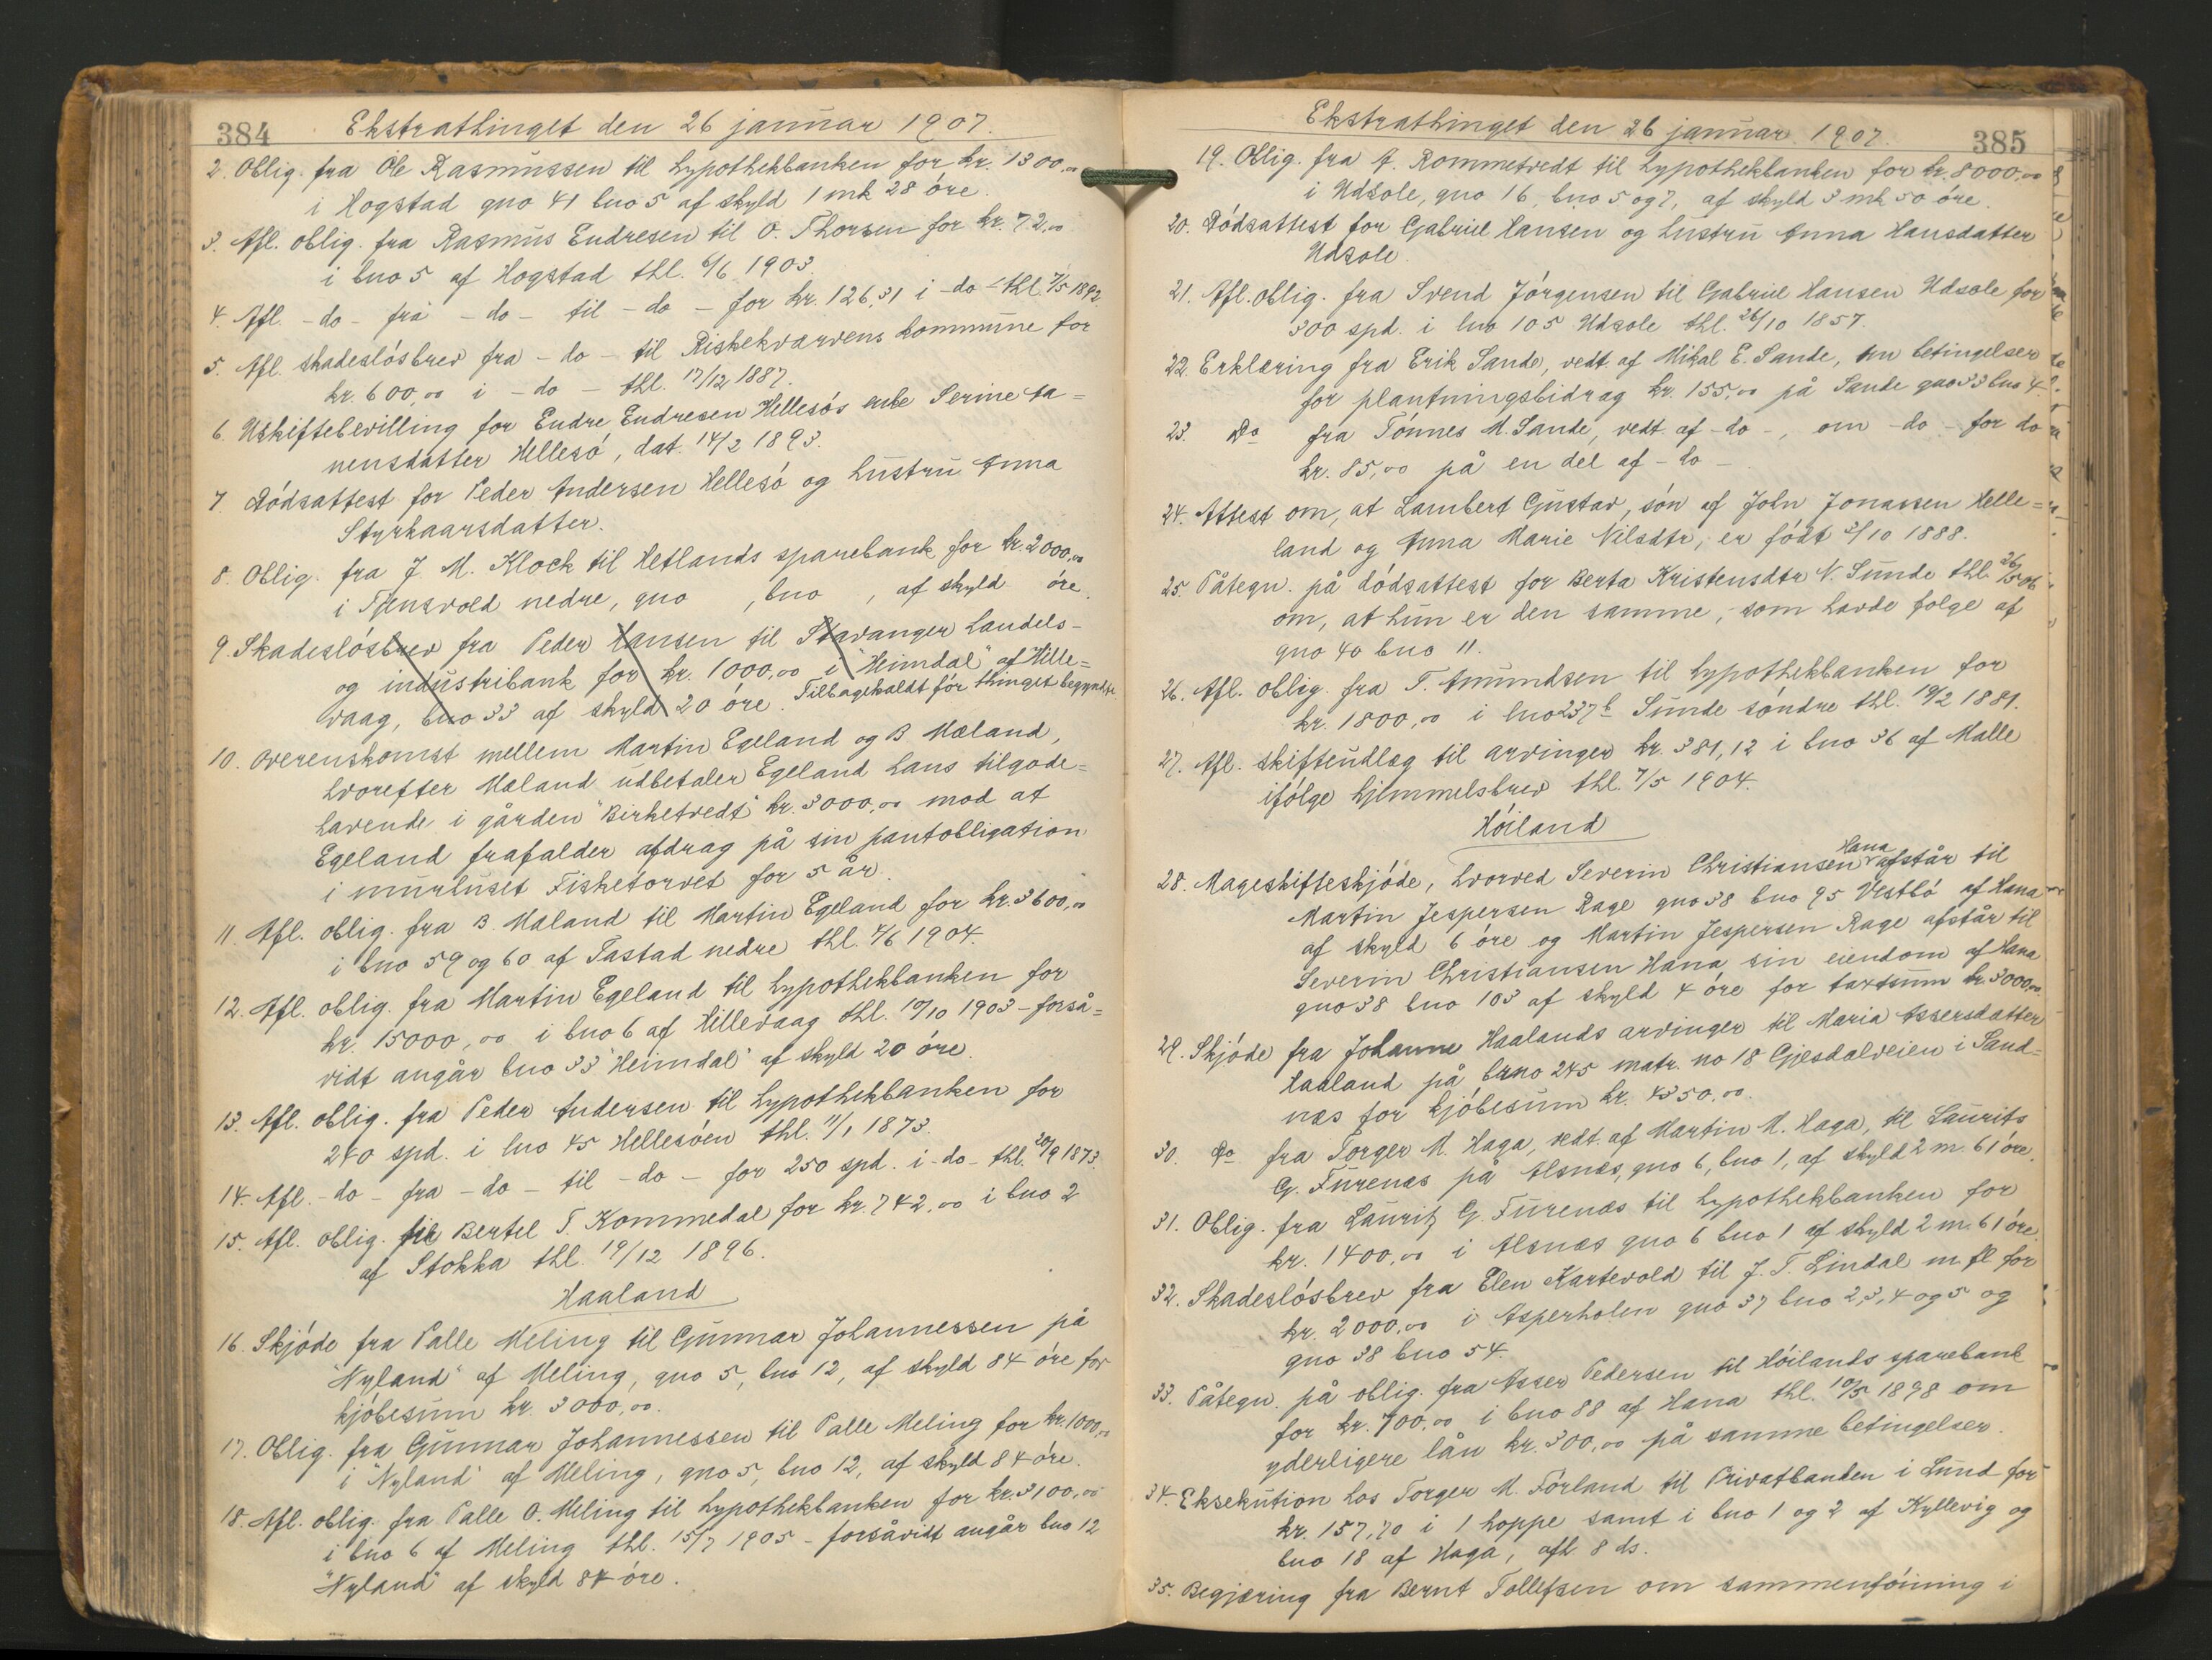 384 Ekstrathinget den 26 januar 1907.
2. Oblig. fra Ole Rasmussen til hypothekbanken for kr. 1300,00
i Hogstad gno 41 bno 5 af skyld 1 mk 28 öre.
3. Afl. oblig. fra Rasmus Endresen til O. Thorsen for kr. 72,00
i bno 5 af Hogstad thl. 6/6 1903.
4. Afl. -do- fra -do- til -do- for kr. 126,31 i -do- thl. 7/5 1892
5. Afl. skadeslósbrev fra -do- til Riskekvarvens kommune for
kr. 600,00 i -do- thl. 17/12 1887.
6. Uskiftebevilling for Endre Endresen Hellesós enke Serine Ta=
nensdatter Hellesó, dat. 14/2 1893.
7. Dódsattest for Peder Andersen Hellesó og hustru Anna
Styrkaarsdatter.
8. Oblig. fra J. M. Kloch til Hetlands sparebank for kr. 2000,00
i Tjensvold nedre, gno , bno , af skyld öre.
9. Skadeslósbrev fra Peder Hansen til Stavanger handels-
og industribank for kr. 1000,00 i "Heimdal" af Hille=
vaag, bno 33 af skyld 20 öre. Tilbagekaldt fór thinget begyndte.
10. Overenskomst mellem Martin Egeland og B Mæland,
hvorefter Mæland udbetaler Egeland hans tilgode=
havende i gården "Birketvedt" kr. 3000,00 mod at
Egeland frafalder afdrag på sin pantobligation
i murhuset Fisketorvet for 5 år.
11. Afl. oblig. fra B. Mæland til Martin Egeland for kr. 3600,00
i bno 59 og 60 af Tastad nedre thl. 4/6 1904.
12. Afl. oblig. fra Martin Egeland til hypothekbanken for
kr. 15000,00 i bno 6 af Hillevaag thl. 10/10 1903 - forså=
vidt angår bno 33 "Heimdal" af skyld 20 öre.
13. Afl. oblig. fra Peder Andersen til hypothekbanken for
240 spd. i lno 45 Hellesöen thl. 11/1 1873.
14. Afl. -do- fra -do- til -do- for 250 spd. i -do- thl. 20/9 1873.
15. Afl. oblig. til Bertel T. Kommedal for kr. 742,00 i bno 2
af Stokka thl. 19/12 1896.
Haaland
16. Skjóde fra Palle Meling til Gunnar Johannessen på
"Nyland" af Meling, gno 5, bno 12, af skyld 84 öre for
kjóbesum kr. 3000,00.
17. Oblig. fra Gunnar Johannessen til Palle Meling for kr. 1000,00
i "Nyland" af Meling, gno 5, bno 12, af skyld 84 öre.
18. Afl. oblig. fra Palle O. Meling til hypothekbanken for kr. 3100,00
i bno 6 af Meling thl. 15/7 1905 - forsåvidt angår bno 12
"Nyland" af skyld 84 öre.
Ekstrathinget den 26 januar 1907. 385
19. Oblig. fra A. Rommetvedt til hypothekbanken for kr. 8000,00
i Udsole, gno 16, bno 5 og 7, af skyld 3 mk 50 öre.
20. Dódsattest for Gabriel Hansen og hustru Anna Hansdatter
Udsole.
21. Afl. oblig. fra Svend Jörgensen til Gabriel Hansen Udsole for
300 spd. i lno 105 Udsole thl. 26/10 1857.
22. Erklæring fra Erik Sande, vedt. af Mikal E. Sande, om betingelser
for plantningsbidrag kr. 155,00 på Sande gno 33 bno 4.
23. Do fra Tónnes M. Sande, vedt. af -do-, om -do- for do
kr. 85,00 på en del af -do-
24. Attest om, at Lambert Gustav, són af John Jonassen Helle=
land og Anna Marie Nilsdtr, er födt 3/10 1888.
25. Påtegn. på dódsattest for Berta Kristensdtr N. Sunde thl. 26/5 06
om, at hun er den samme, som havde folge af
gno 40 bno 11.
26. Afl. oblig. fra T. Amundsen til hypothekbanken for
kr. 1800,00 i lno 237b Sunde söndre thl. 19/2 1881.
27. Afl. skifteudlæg til arvinger kr. 381,12 i bno 36 af Malle
ifólge hjemmelsbrev thl. 7/5 1904.
Höiland
28. Mageskifteskjóde, hvorved Severin Christiansen Hana afstår til
Martin Jespersen Rage gno 38 bno 95 Vestbó af Hana
af skyld 6 öre og Martin Jespersen Rage afstår til
Severin Christiansen Hana sin eiendom af Hana
gno 38 bno 103 af skyld 4 öre for taxtsum kr. 3000,00.
29. Skjóde fra Johanne Haalands arvinger til Maria Assersdatter
Haaland på brno 245 matr. no 18 Gjesdalveien i Sand=
næs for kjóbesum kr. 4350,00.
30. Do fra Torger M. Haga, vedt. af Martin M. Haga, til Laurits
G. Furenæs på Alsnæs, gno 6, bno 1, af skyld 2 m. 61 öre.
31. Oblig. fra Lauritz G. Furenæs til hypothekbanken for
kr. 1400,00 i Alsnæs gno 6 bno 1 af skyld 2 m. 61 öre.
32. Skadeslósbrev fra Elen Kartevold til J. T. Lindal m fl for
kr. 2000,00 i Asperholen gno 37 bno 2, 3, 4 og 5 og
gno 38 bno 54.
33. Påtegn. på oblig. fra Asser Pedersen til Höilands sparebank
for kr. 700,00 i bno 88 af Hana thl. 10/5 1898 om
yderligere lån kr. 300,00 på samme betingelser.
34. Eksekution hos Torger M. Fórland til Privatbanken i Lund for
kr. 157,70 i 1 hoppe samt i bno 1 og 2 af Kyllevig og
bno 18 af Haga, afh. 8 ds.
35. Begjæring fra Bernt Tollefsen om sammenföining i